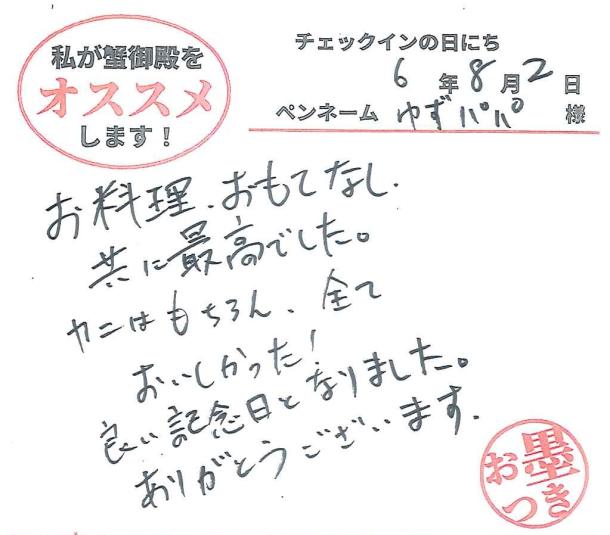 私が蟹御殿を
オススメ
します！
チェックインの日にち
6年8月2日
ペンネーム ゆずパパ 様
お料理、おもてなし、
共に最高でした。
カニはもちろん、全て
おいしかった！
良い記念日となりました。
ありがとうございます。
お墨
つき